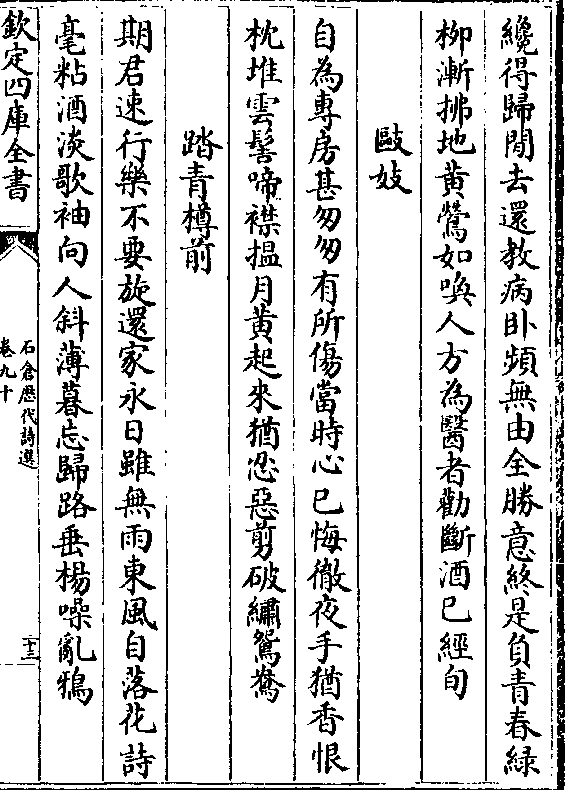 纔得歸閒去還教病卧頻無由全勝意終是負青春緑
栁漸拂地黄鶯如喚人方為醫者勸斷酒已經旬
毆妓
自為專房甚匆匆有所傷當時心已悔徹夜手猶香恨
枕堆雲髻啼襟揾月黄起來猶忍惡剪破繡鴛鴦
踏青樽前
期君速行樂不要旋還家永日雖無雨東風自落花詩
毫粘酒淡歌袖向人斜薄暮忘歸路垂楊噪亂鴉
欽定四庫全書
石倉歷代詩選
卷九十
十三